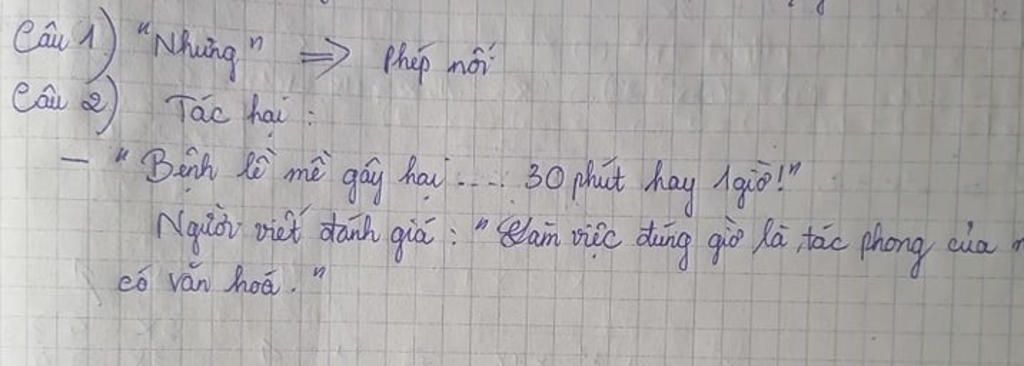 Câu 1) "Nhưng" => Phép nối
Câu 2) Tác hại :
- "Bệnh lề mề gây hại .... 30 phút hay 1 giờ!"
Người viết đánh giá : "Làm việc đúng giờ là tác phong của
có văn hoá."